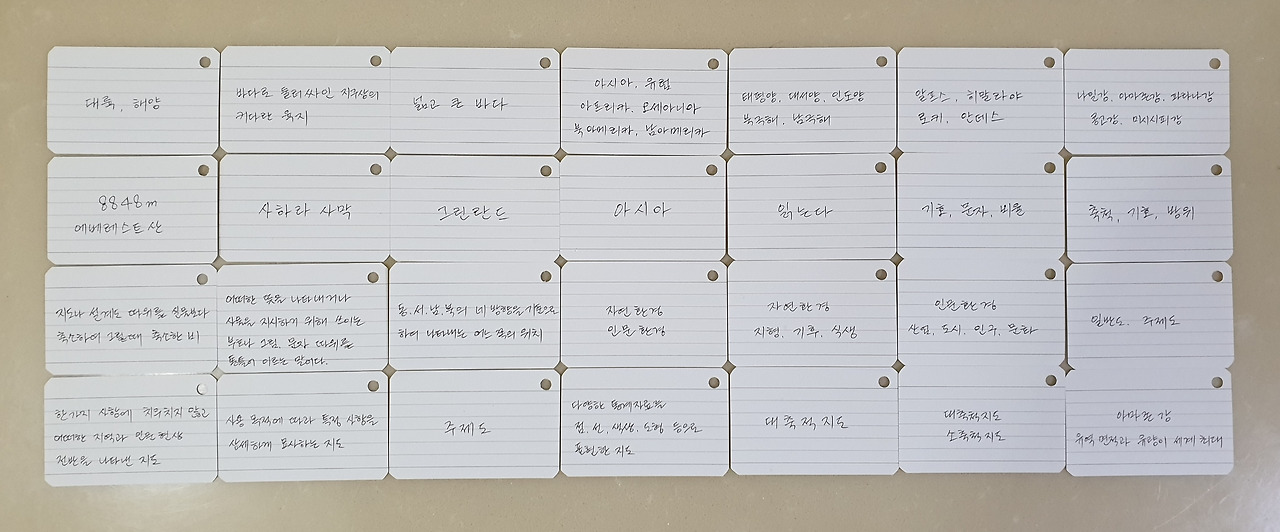 대륙, 해양
바다로 둘러싸인 지구상의
커다란 육지
넓고 큰 바다
아시아, 유럽
아프리카, 오세아니아
북아메리카, 남아메리카
태평양, 대서양, 인도양
북극해, 남극해
알프스, 히말라야
로키, 안데스
나일강, 아마존강, 파라나강
콩고강, 미시시피강
8848m
에베레스트산
사하라 사막
그린란드
아시아
읽는다
기호, 문자, 비율
축척, 기호, 방위
지도나 설계도 따위를 실물보다
축소하여 그릴때 축소한 비
어떠한 뜻을 나타내거나
사물을 지시하기 위해 쓰이는
부호나 그림, 문자 따위를
통틀어 이르는 말이다.
동.서.남.북의 네 방향을 기준으로
하여 나타내는 어느 쪽의 위치
자연환경
인문환경
자연환경
지형, 기후, 식생
인문환경
산업, 도시, 인구, 문화
일반도, 주제도
한가지 사항에 치우치지 않고
어떠한 지역과 일반현상
전반을 나타낸 지도
사용 목적에 따라 특정 사항을
상세하게 묘사하는 지도
주제도
다양한 통계자료를
점, 선, 색상, 도형 등으로
표현한 지도
대축척지도
대축척지도
소축척지도
아마존강
유역면적과 유량이 세계 최대